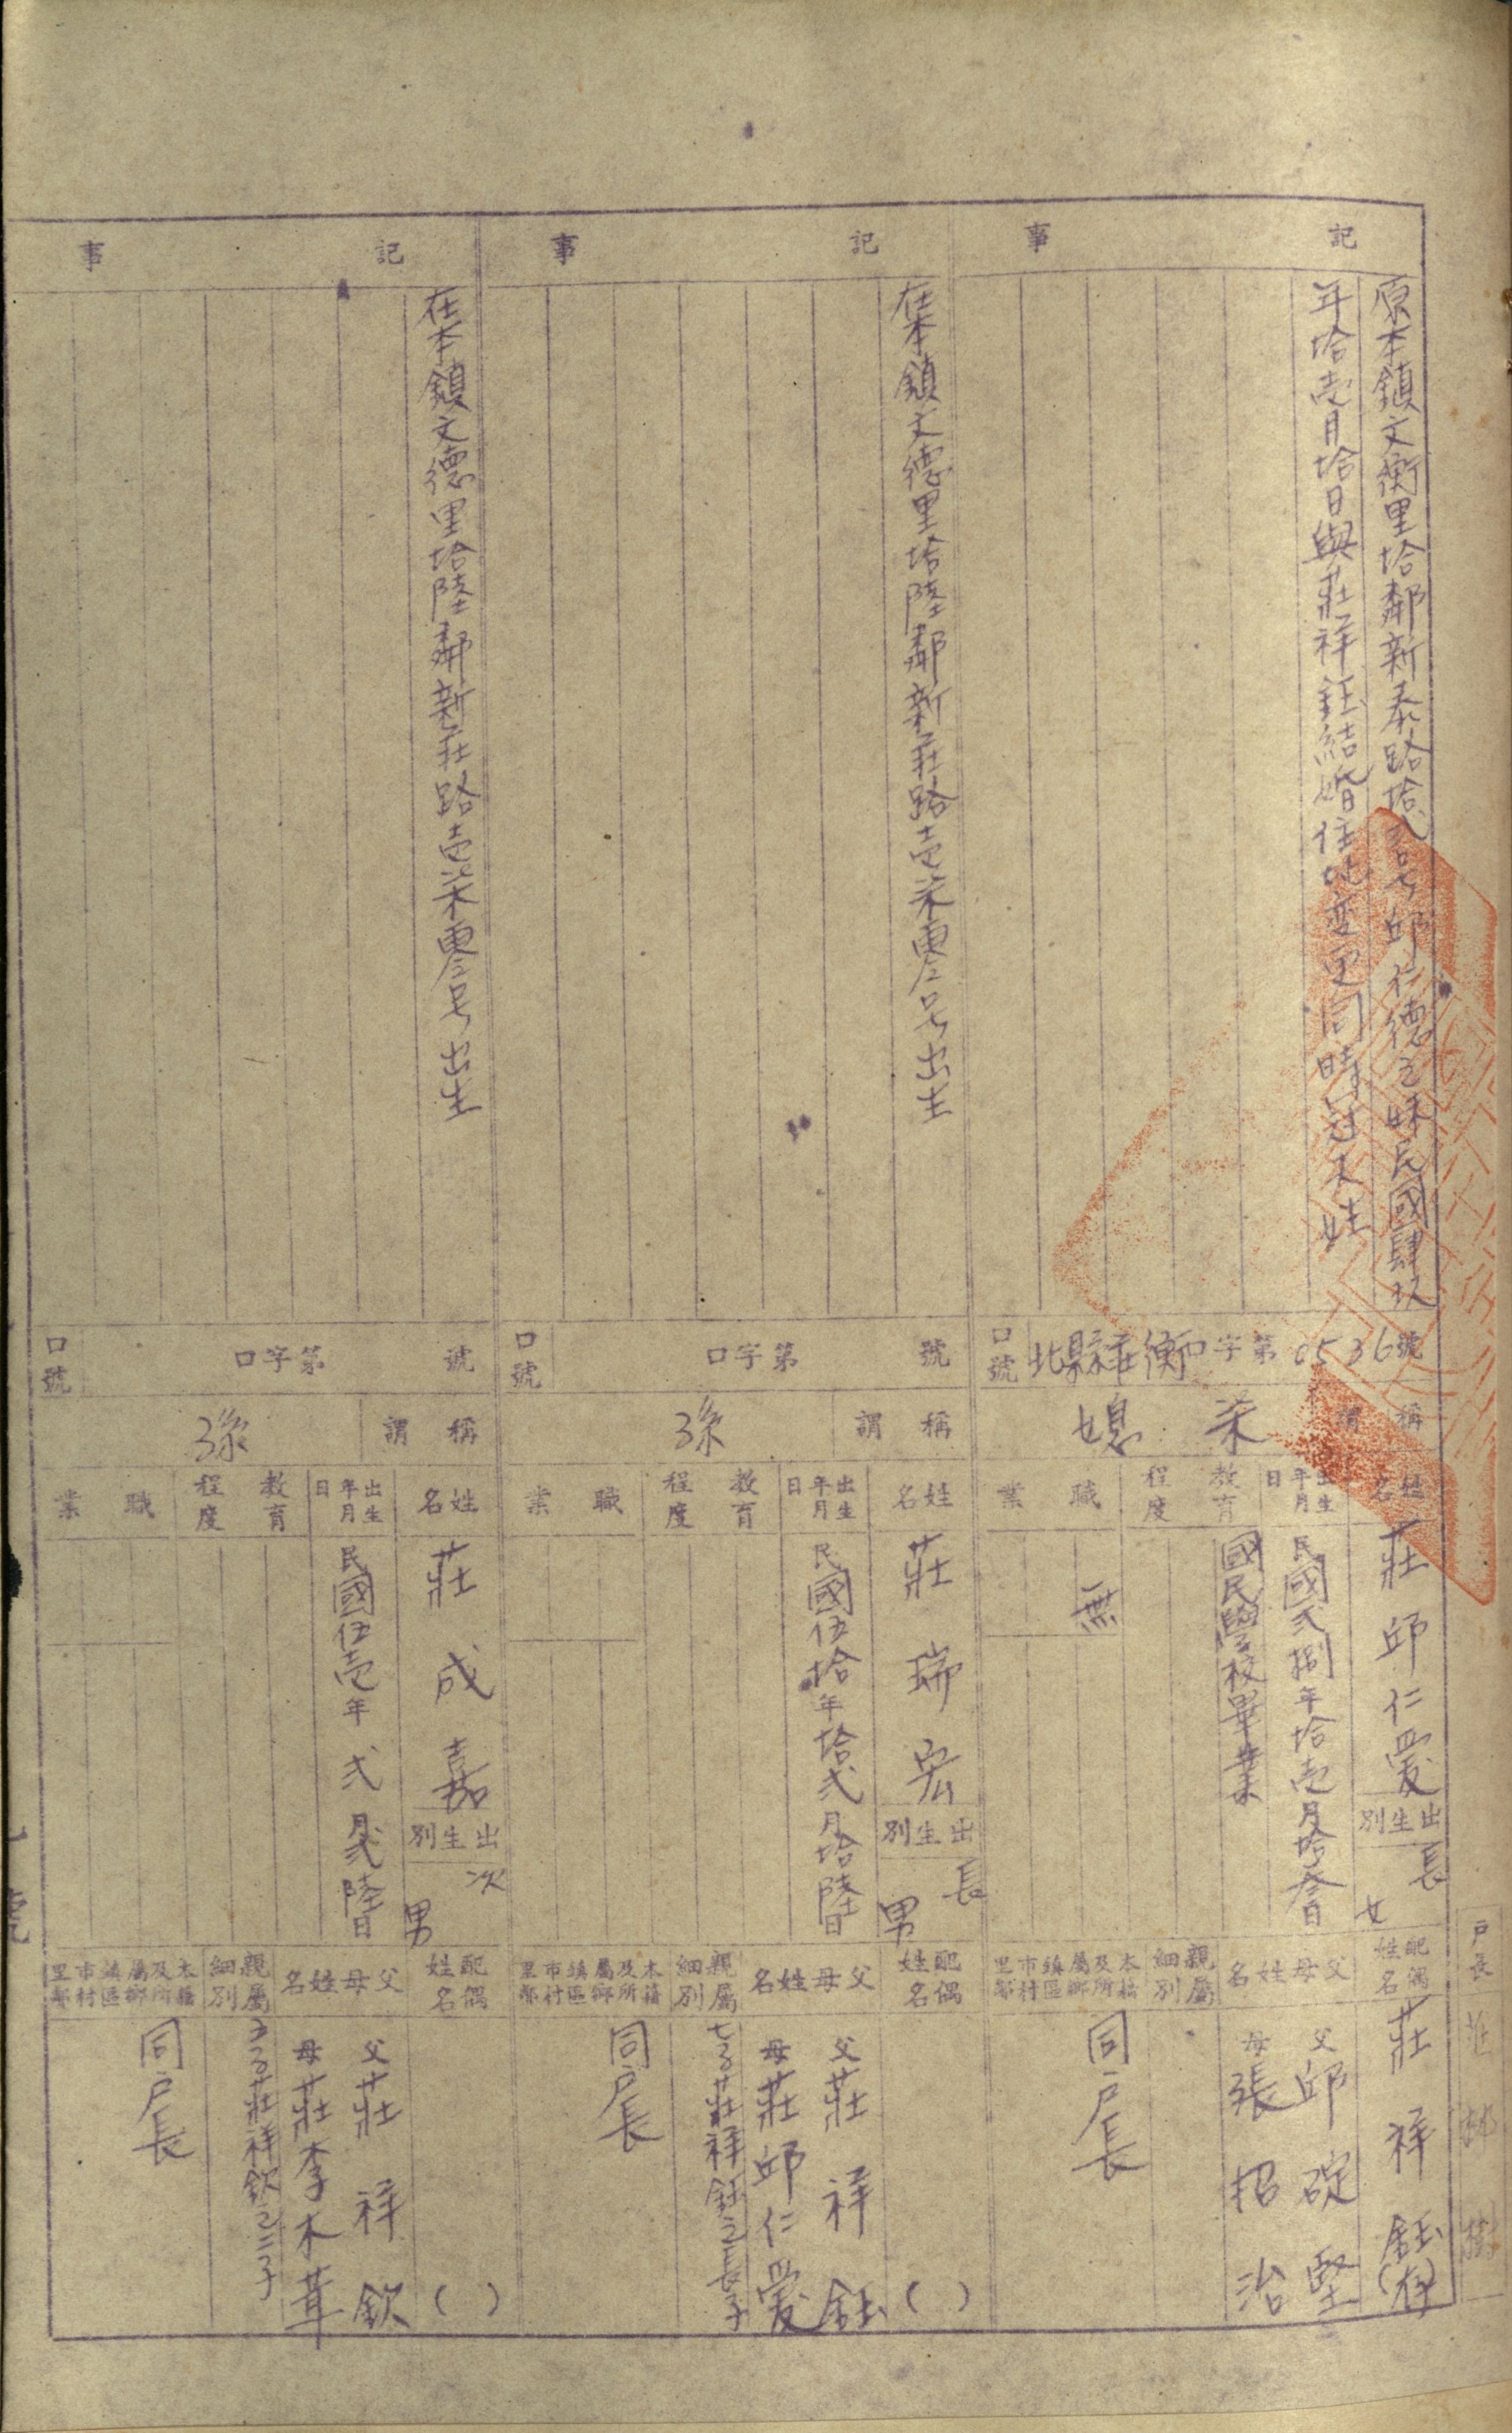 記事
原本鎮文衡里拾鄰新泰路拾弍号邱仁德之妹民國肆玖
年拾壱月拾日與莊祥鈺結婚住址变更同時冠夫姓
口號
北縣莊衡口字第0536號
稱謂
柒媳
姓名
莊邱仁愛
出生別
長女
出生年月日
民國弍捌年拾壱月拾叁日
教育程度
國民學校畢業
職業
無
配偶姓名
莊祥鈺(存)
父母姓名
父邱碇堅
母張招治
親屬細別
本籍及所屬鄉鎮區市村里鄰
同戶長
戶長
莊
樹
記事
在本鎮文德里拾陸鄰新莊路壱柒零号出生
口號
口字第 號
稱謂
孫
姓名
莊瑞宏
出生別
長男
出生年月日
民國伍拾年拾弍月拾陸日
教育程度
職業
配偶姓名
( )
父母姓名
父莊祥鈺
母莊邱仁愛
親屬細別
七子莊祥鈺之長子
本籍及所屬鄉鎮區市村里鄰
同戶長
記事
在本鎮文德里拾陸鄰新莊路壱柒零号出生
口號
口字第 號
稱謂
孫
姓名
莊成嘉
出生別
次男
出生年月日
民國伍壱年弍月弍陸日
教育程度
職業
配偶姓名
( )
父母姓名
父莊祥欽
母莊李木茸
親屬細別
子莊祥欽之二子
本籍及所屬鄉鎮區市村里鄰
同戶長
號